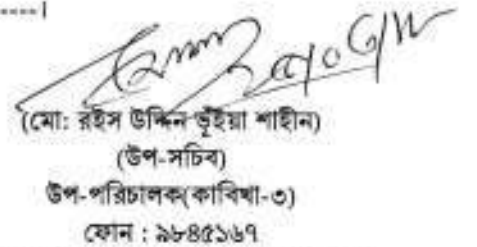 ----।
(মো: রইস উদ্দিন ভূঁইয়া শাহীন)
(উপ-সচিব)
উপ-পরিচালক(কাবিখা-৩)
ফোন : ৯৮৪৫১৬৭